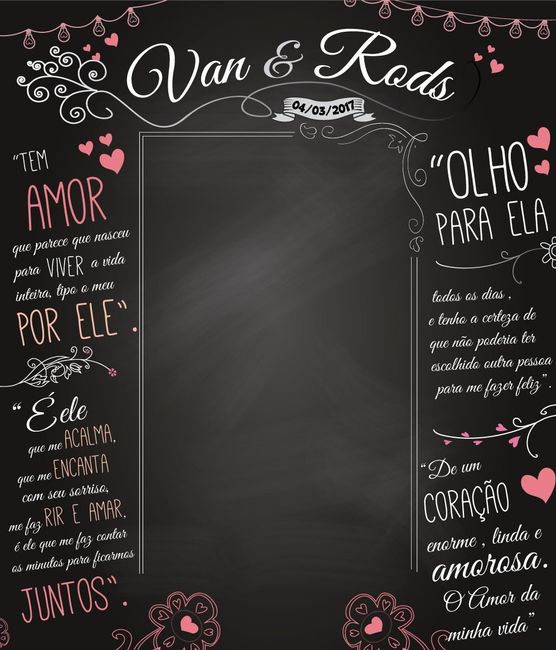 Van & Rods
04/03/2017
"TEM
AMOR
que parece que nasceu
para VIVER a vida
inteira, tipo o meu
POR ELE".
"É ele
que me ACALMA,
que me ENCANTA
com seu sorriso,
me faz RIR E AMAR.
é ele que me faz contar
os minutos para ficarmos
JUNTOS".
"OLHO
PARA ELA
todos os dias ,
e tenho a certeza de
que não poderia ter
escolhido outra pessoa
para me fazer feliz".
"De um
CORAÇÃO
enorme , linda e
amorosa.
O Amor da
minha vida".